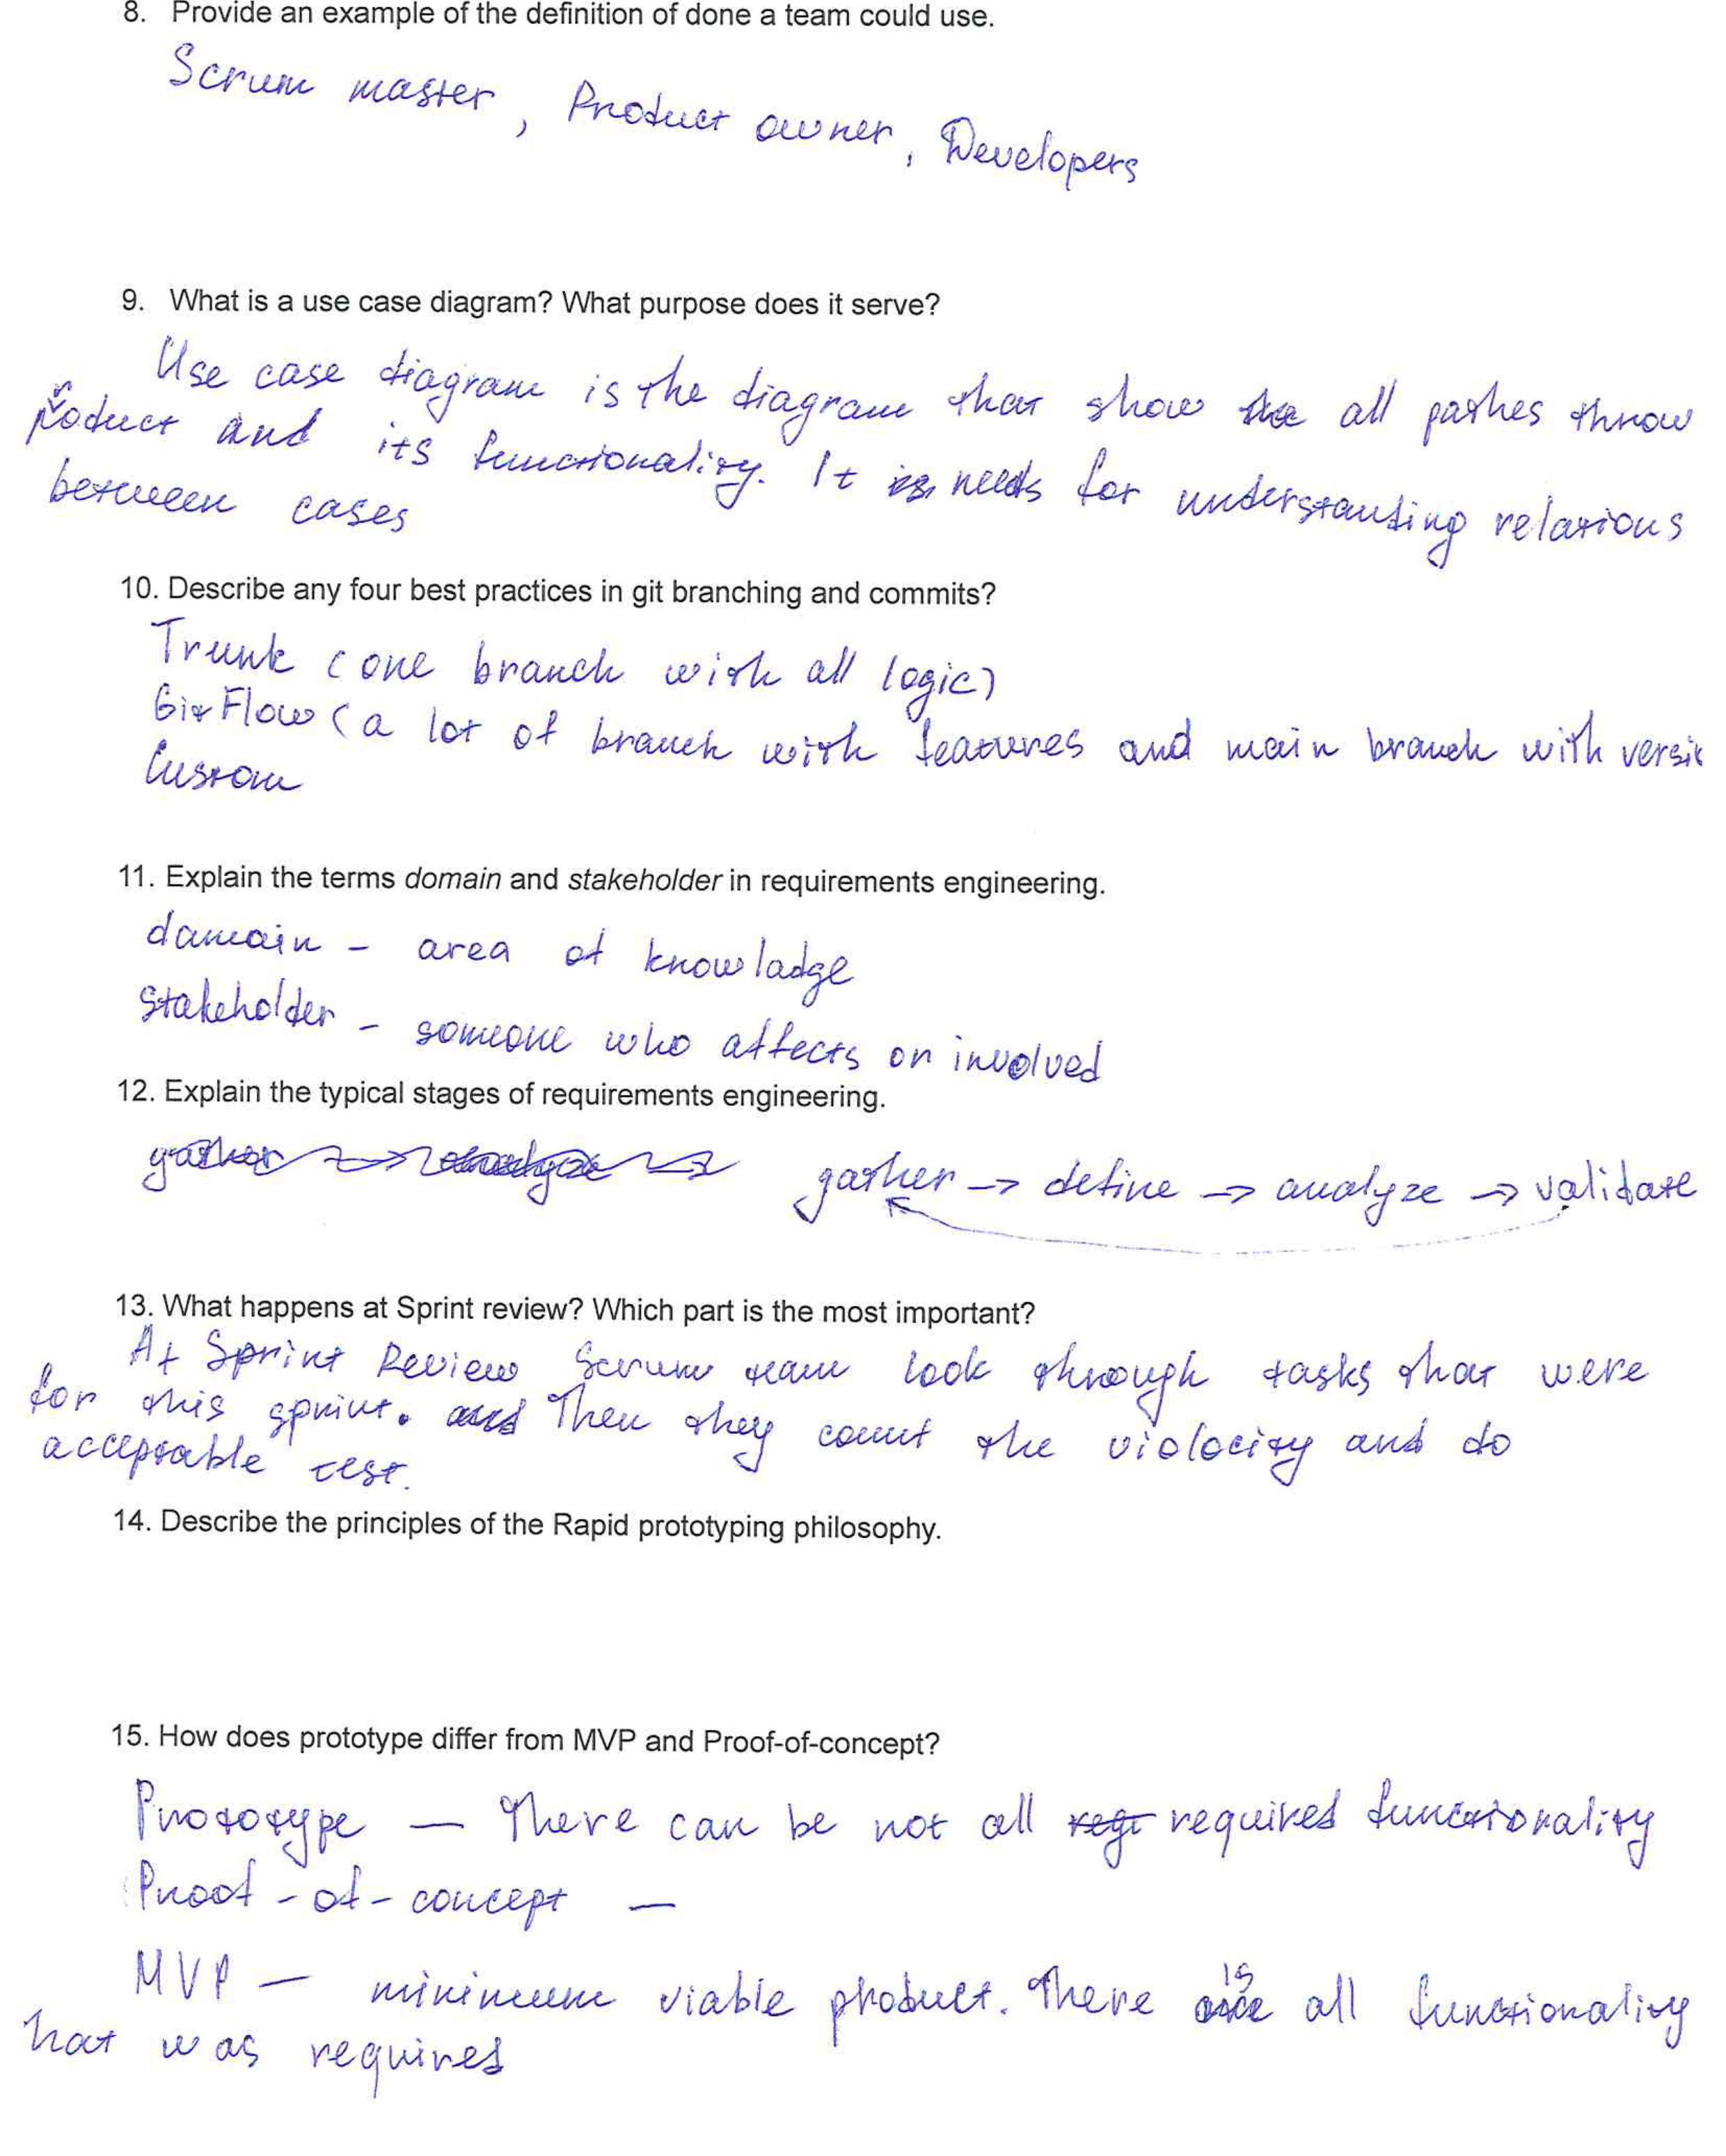 8. Provide an example of the definition of done a team could use.
Scrum master, Product owner, Developers
9. What is a use case diagram? What purpose does it serve?
Use case diagram is the diagram that show the all pathes throw
product and its functionality. It is needs for understanding relations
between cases
10. Describe any four best practices in git branching and commits?
Trunk (one branch with all logic)
GitFlow (a lot of branch with features and main branch with versi
Custom
11. Explain the terms domain and stakeholder in requirements engineering.
domain - area of knowladge
Stakeholder - someone who affects or involved
12. Explain the typical stages of requirements engineering.
gather → analyze →
gather → define → analyze → validate
13. What happens at Sprint review? Which part is the most important?
At Sprint Review Scrum team look through tasks that were
for this sprint. and Then they count the violocity and do
acceptable test.
14. Describe the principles of the Rapid prototyping philosophy.
15. How does prototype differ from MVP and Proof-of-concept?
Prototype — There can be not all required functionality
Proof-of-concept —
MVP — minimum viable product. There is all functionality
hat was required